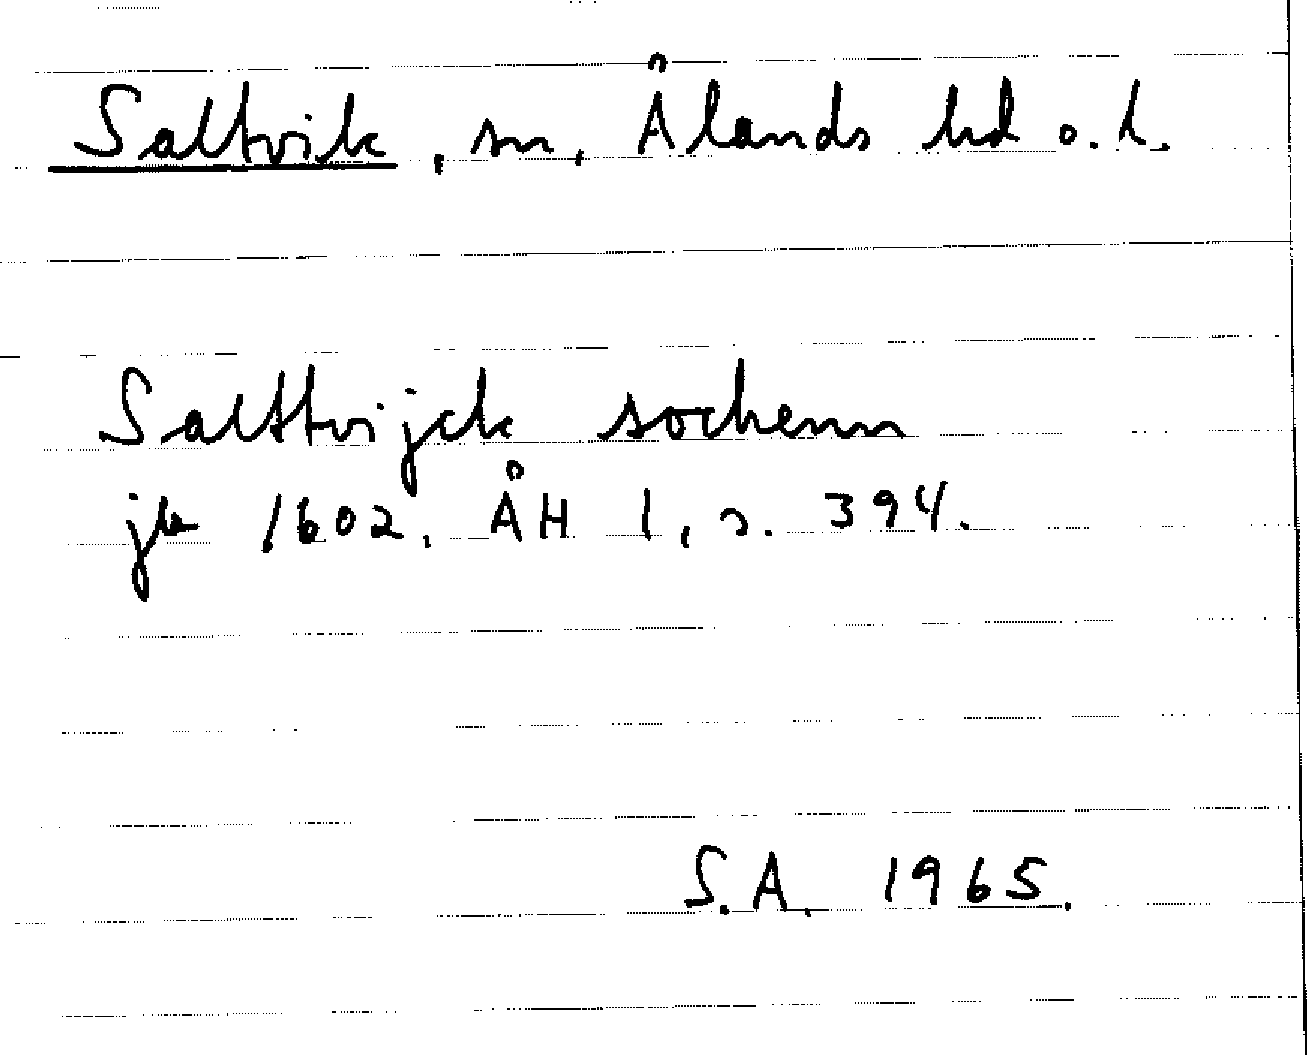 Saltvik, sn, Ålands hd o. l.
Salttvijck sochenn
jb 1602. ÅH 1, s. 394.
S.A. 1965.